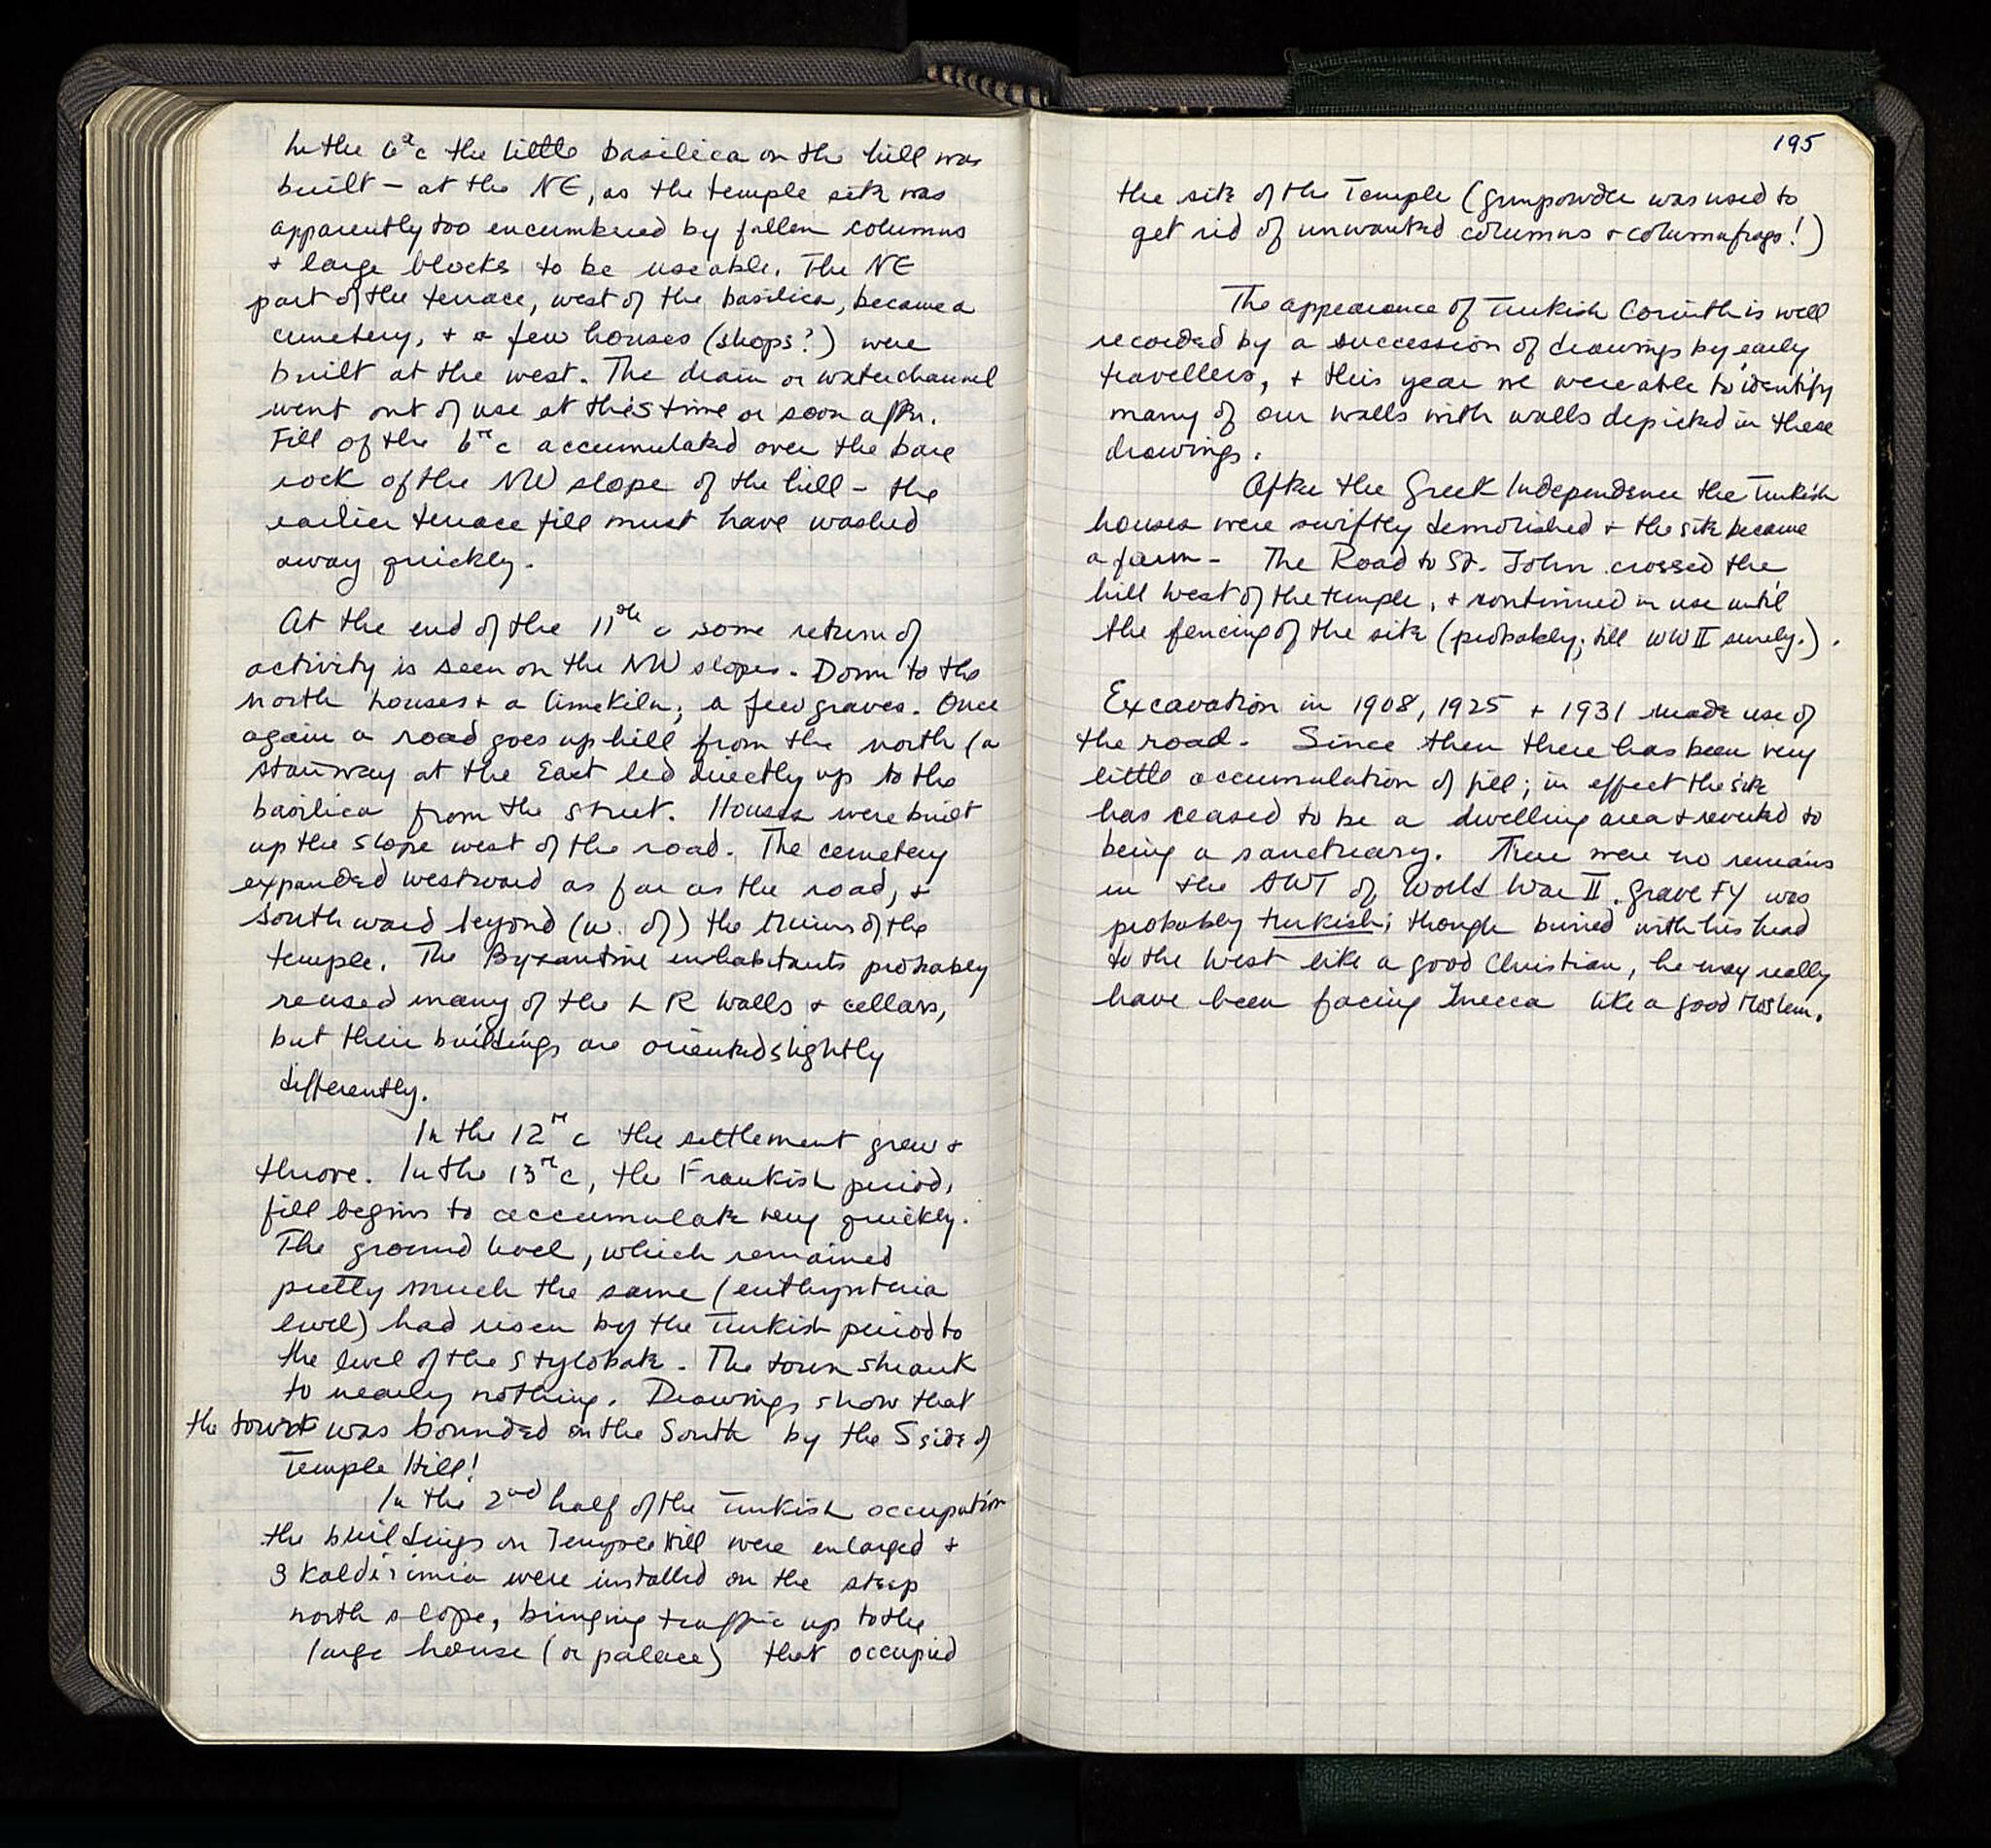 In the 6th c the little basilica on the hill was
built – at the NE, as the temple site was
apparently too encumbered by fallen columns
+ large blocks to be useable. The NE
part of the terrace, west of the basilica, became a
cemetery, + a few houses (shops?) were
built at the west. The drain or waterchannel
went out of use at this time or soon after.
Fill of the 6th c accumulated over the bare
rock of the NW slope of the hill – the
earlier terrace fill must have washed
away quickly.
At the end of the 11th c some return of
activity is seen on the NW slopes. Down to the
north houses + a limekiln; a few graves. Once
again a road goes up hill from the north (a
stairway at the East led directly up to the
basilica from the street. Houses were built
up the slope west of the road. The cemetery
expanded westward as far as the road, +
southward beyond (w. of) the ruins of the
temple. The Byzantine inhabitants probably
reused many of the L R walls + cellars,
but their buildings are oriented slightly
differently.
In the 12th c the settlement grew +
throve. In the 13th c, the Frankish period,
fill begins to accumulate very quickly.
The ground level, which remained
pretty much the same (euthynteria
level) had risen by the Turkish period to
the level of the stylobate. The town shrank
to nearly nothing. Drawings show that
the town was bounded on the South by the S side of
Temple Hill!
In the 2nd half of the Turkish occupation
the buildings on Temple Hill were enlarged +
3 kaldirimia were installed on the steep
north slope, bringing traffic up to the
large house (or palace) that occupied
195
the site of the Temple (gunpowder was used to
get rid of unwanted columns + column frags!)
The appearance of Turkish Corinth is well
recorded by a succession of drawings by early
travellers, + this year we were able to identify
many of our walls with walls depicted in these
drawings.
After the Greek Independence the Turkish
houses were swiftly demolished + the site became
a farm – The Road to St. John crossed the
hill west of the temple, + continued in use until
the fencing of the site (probably; till WW II surely.).
Excavation in 1908, 1925 + 1931 made use of
the road. Since then there has been very
little accumulation of fill; in effect the site
has ceased to be a dwelling area + reverted to
being a sanctuary. There were no remains
in the AWT of World War II. Grave FY was
probably Turkish; though buried with his head
to the West like a good Christian, he may really
have been facing Mecca like a good Moslem.